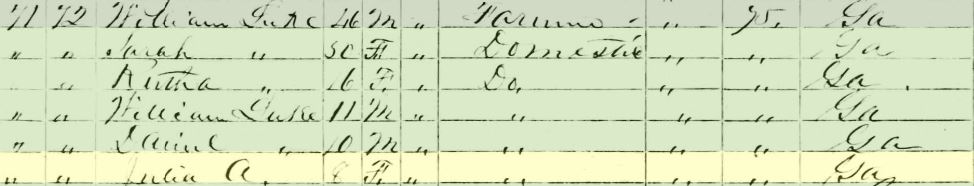 71 72 William Luke 46 M " Farming " 75. Ga
" " Sarah " 30 F " Domestic " " Ga
" " " 16 F. " Do " " Ga
" " William Luke 11 M " " " " Ga
" " Daniel " 10 M " " " " Ga
" " Julia A. 8 F. " " " " Ga